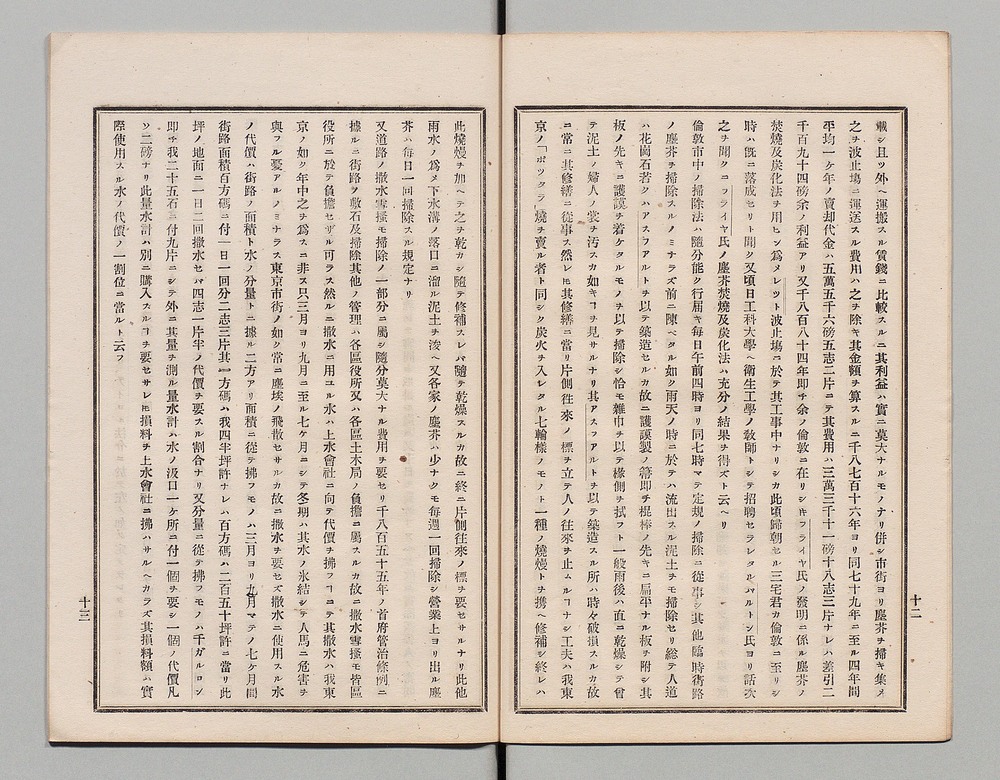 載シ且ツ外ヘ運搬スル賃錢ニ比較スルニ其利益ハ實ニ莫大ナルモノナリ併シ市街ヨリ塵芥ヲ掃キ集メ
之ヲ波止塲ニ運送スル費用ハ之ヲ除キ其金額ヲ算スルニ千八百七十六年ヨリ同七十九年ニ至ル四年間
平均一ケ年ノ賣却代金ハ五萬五千六磅五志二片ニテ其費用ハ三萬三千十一磅十八志三片ナレハ差引二
千百九十四磅余ノ利益アリ又千八百八十四年即チ余ノ倫敦ニ在リシキフライヤ氏ノ發明ニ係ル塵芥ノ
焚燒及炭化法ヲ用ヒン爲メレツト波止塲ニ於テ其工事中ナリシカ此頃歸朝セル三宅君カ倫敦ニ至リシ
時ハ既ニ落成セリト聞ク又頃日工科大學ヘ衛生工學ノ敎師トシテ招聘セラレタルバルトン氏ヨリ話次
之ヲ聞クニフライヤ氏ノ塵芥焚燒及炭化法ハ充分ノ結果ヲ得ズト云ヘリ
倫敦市中ノ掃除法ハ隨分能ク行届キ毎日午前四時ヨリ同七時マテ定規ノ掃除ニ從事シ其他臨時街路
ノ塵芥ヲ掃除スルノミナラズ前ニ陳ベタル如ク雨天ノ時ニ於テハ流出スル泥土ヲモ掃除セリ總テ人道
ハ花崗石若クハアスフアルトヲ以テ築造セルカ故ニ護謨製ノ箒即チ棍棒ノ先キニ扁平ナル板ヲ附シ其
板ノ先キニ護謨ヲ着ケタルモノヲ以テ掃除シ恰モ雜巾ヲ以テ椽側ヲ拭フト一般雨後ハ直ニ乾燥シテ曾
テ泥土ノ婦人ノ裳ヲ汚スカ如キヿヲ見サルナリ其アスフアルトヲ以テ築造スル所ハ時々破損スルカ故
ニ常ニ其修繕ニ從事ス然レ𪜈其修繕ニ當リ片側往來ノ標ヲ立テ人ノ往來ヲ止ムルヿナシ工夫ハ我東
京ノ「ポツタラ」燒ヲ賣ル者ト同シク炭火ヲ入レタル七輪樣ノモノト一種ノ燒熳トヲ携ヘ修補シ終レハ
十二
此燒熳ヲ加ヘテ之ヲ乾カシ隨テ修補スレバ隨テ乾燥スルカ故ニ終ニ片側往來ノ標ヲ要セサルナリ此他
雨水ノ爲メ下水溝ノ落口ニ溜ル泥土ヲ浚ヘ又各家ノ塵芥ハ少ナクモ毎週一回掃除シ營業上ヨリ出ル塵
芥ハ毎日一回掃除スル規定ナリ
又道路ノ撒水雪搔モ掃除ノ一部分ニ屬シ隨分莫大ナル費用ヲ要セリ千八百五十五年ノ首府管治條例ニ
據ルニ街路ヲ敷石及掃除其他ノ管理ハ各區役所又ハ各區土木局ノ負擔ニ屬スルカ故ニ撒水雪搔モ皆區
役所ニ於テ負擔セザル可ラス然ルニ撒水ニ用ユル水ハ上水會社ニ向テ代價ヲ拂フヿニテ其撒水ハ我東
京ノ如ク年中之ヲ爲スニ非ス只三月ヨリ九月ニ至ル七ケ月ニシテ冬期ハ其水ノ氷結シテ人馬ニ危害ヲ
與フル憂アルノミナラス東京市街ノ如ク常ニ塵埃ノ飛散セサルカ故ニ撒水ヲ要セズ撒水ニ使用スル水
ノ代價ハ街路ノ面積ト水ノ分量トニ據ル二方アリ面積ニ從テ拂フモノハ三月ヨリ九月マテノ七ケ月間
街路面積百方碼ニ付一日一回分二志三片其一方碼ハ我四半坪許ナレハ百方碼ハ二百五十坪許ニ當リ此
坪ノ地面ニ一日二回撒水セバ四志一片半ノ代價ヲ要スル割合ナリ又分量ニ從テ拂フモノハ千ガルロン
即チ我二十五石ニ付九片ニシテ外ニ其量ヲ測ル量水計ハ水ノ汲口一ケ所ニ付一個ヲ要シ一個ノ代價凡
ソ二磅ナリ此量水計ハ別ニ購入スルヿヲ要セサレ𪜈損料ヲ上水會社ニ拂ハサルヘカラズ其損料額ハ實
際使用スル水ノ代價ノ一割位ニ當ルト云フ
十三